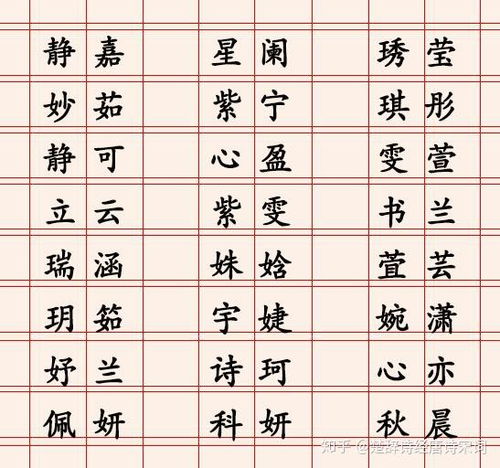 静嘉 星阑 琇莹
妙茹 紫宁 琪彤
静可 心盈 雯萱
立云 紫雯 书兰
瑞涵 姝焓 萱芸
玥筎 宇婕 婉潇
妤兰 诗珂 心亦
佩妍 科妍 秋晨
知乎 @楚辞诗经唐诗宋词